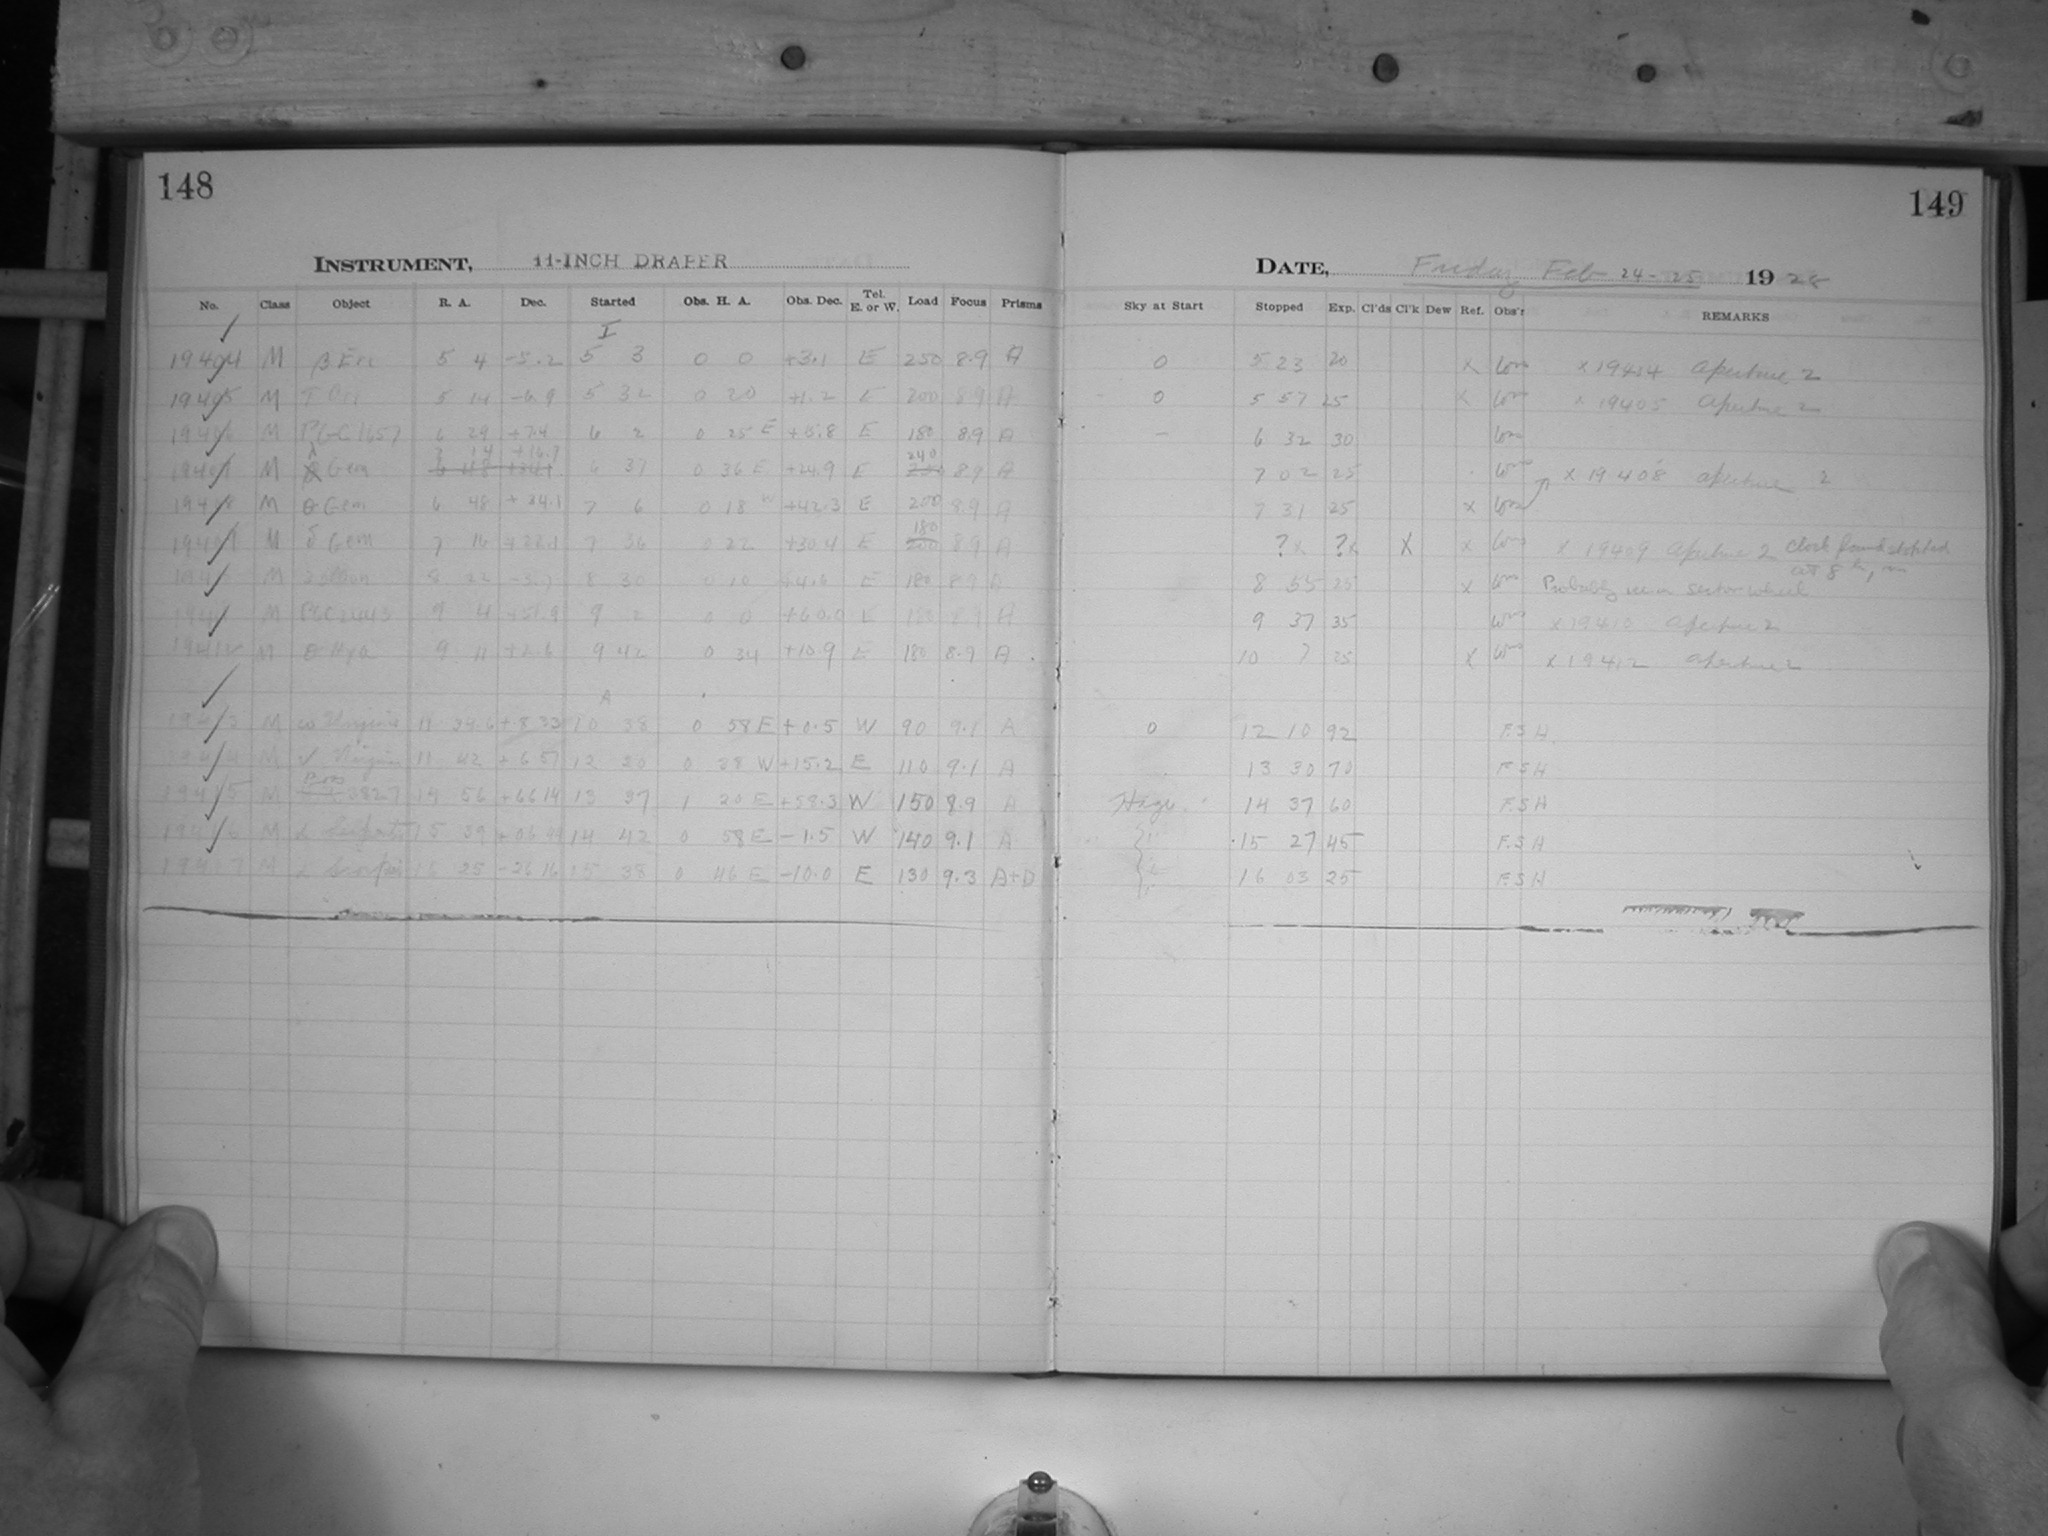 148
INSTRUMENT, 11-INCH DRAPER
No. Class Object R. A. Dec. Started Obs. H. A. Obs. Dec. Tel. E. or W. Load Focus Prisms
I
19404 M β Eri 5 4 -5.2 5 3 0 0 +3.1 E 250 8.9 A
19405 M τ Ori 5 14 -6.9 5 32 0 20 +1.2 E 200 8.9 A
19406 M PGC 1657 6 29 +7.4 6 2 0 25 E +15.8 E 180 8.9 A
λ 7 14 +16.7 240
M Gem 6 48 +34.1 6 37 0 36 E +24.9 E 8.9 A
19408 M θ Gem 6 48 +34.1 7 6 0 18 W +42.3 E 200 8.9 A
180
19409 M δ Gem 7 16 +22.1 7 36 0 22 +30.4 E 200 8.9 A
M 8 22 -3.7 8 30 0 10 +4.6 E 180 8.9 A
M PGC 2443 9 4 +51.9 9 2 0 0 +60.0 E 180 8.9 A
19412 M θ Hya 9 11 +2.6 9 42 0 34 +10.9 E 180 8.9 A
A
19413 M ω Virginis 11 34.6 +8 33 10 38 0 58 E +0.5 W 90 9.1 A
19414 M ν Virginis 11 42 +6 57 12 20 0 38 W +15.2 E 110 9.1 A
Boss
19415 M 3827 14 56 +66 14 13 37 1 20 E +58.3 W 150 8.9 A
19416 M α Serpentis 15 39 +06 44 14 42 0 58 E -1.5 W 140 9.1 A
19417 M α Scorpii 16 25 -26 16 15 38 0 46 E -10.0 E 130 9.3 A+D
149
DATE, Friday Feb 24-25 1928
Sky at Start Stopped Exp. Cl'ds Cl'k Dew Ref. Obs'r REMARKS
0 5 23 20 x x 19404 aperture 2
0 5 57 25 x x 19405 aperture 2
— 6 32 30
7 02 25 x 19408 aperture 2
7 31 25 x
? x ? x X x x 19409 aperture 2 Clock found stopped
at 8
8 55 25 x Probably sector wheel
9 37 35 x 19410 aperture 2
10 7 25 x x 19412 aperture 2
0 12 10 92 F.S.H.
13 30 70 F.S.H
Haze 14 37 60 F.S.H
" 15 27 45 F.S.H
" 16 03 25 F.S.H